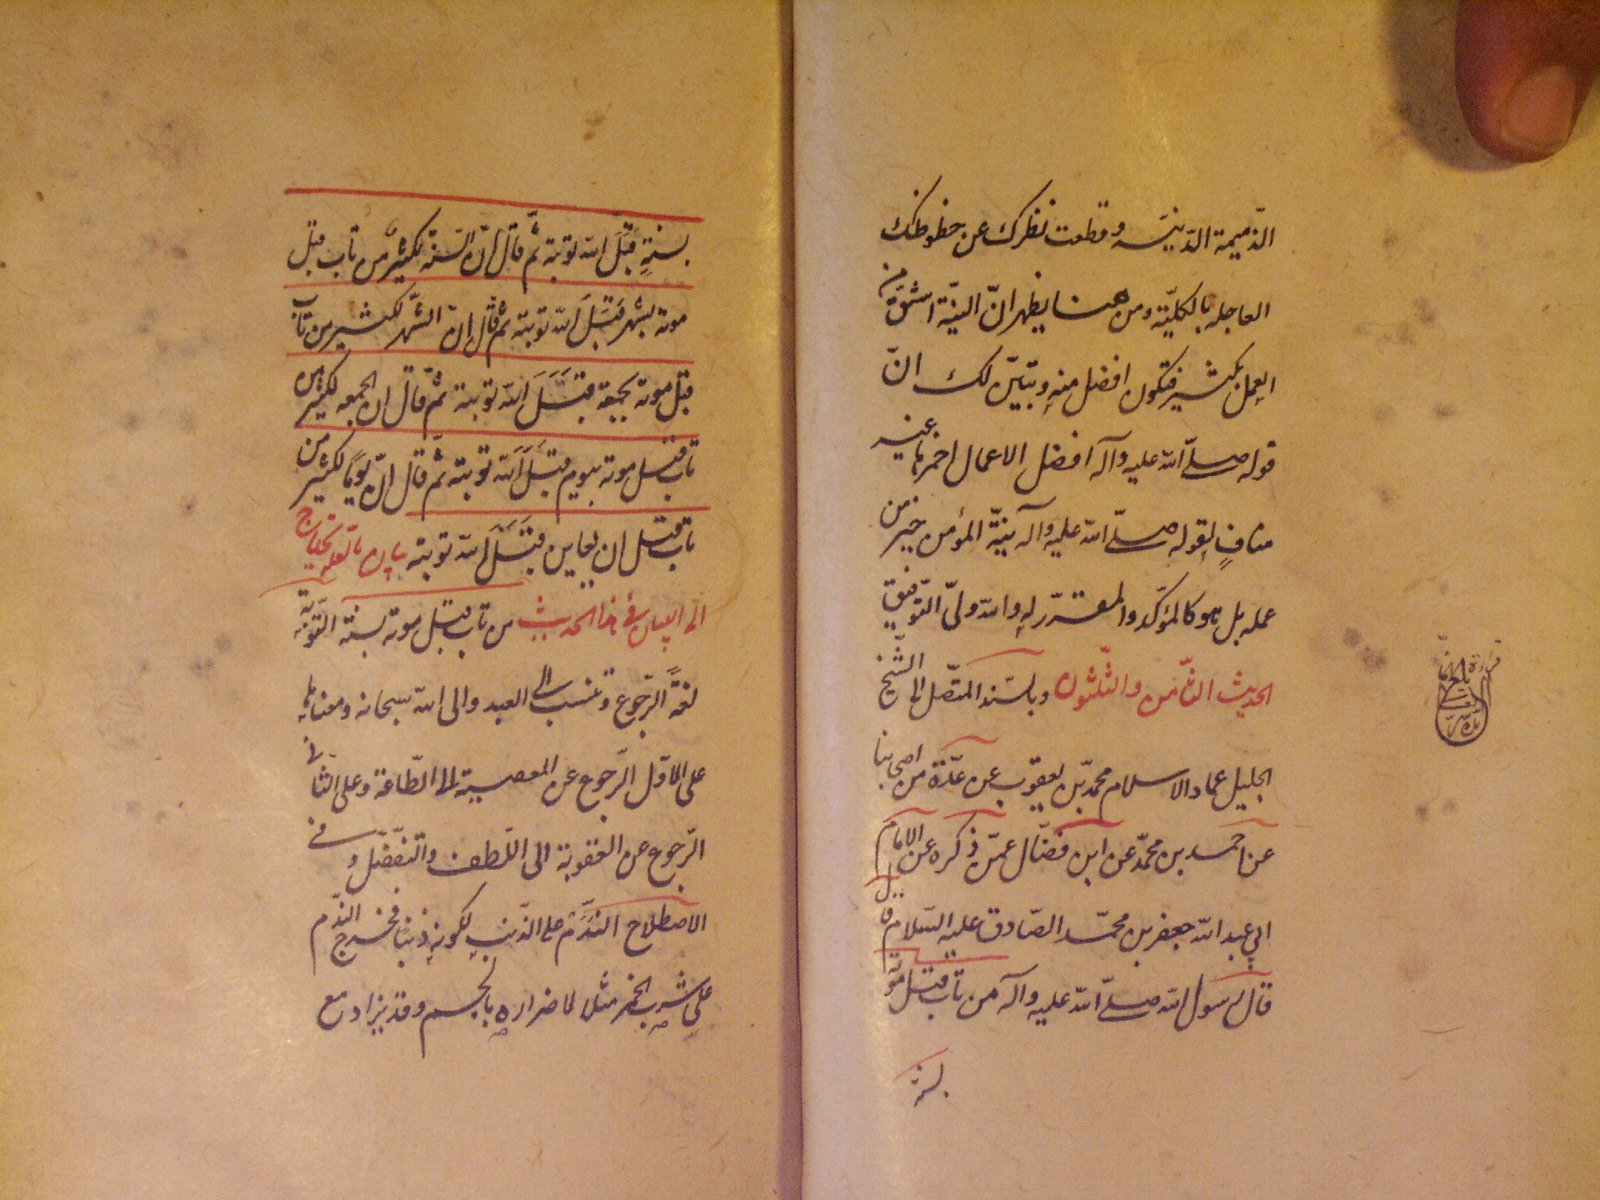 الذّميمة الدّنيّه وقطعت نظرك عن حظوظك
العاجله بالكليّة ومن هنا يظهر انّ النيّة اشقّ من
العمل بكثير فتكون افضل منه وتبيّن لك انّ
قوله صلّى الله عليه وآله افضل الاعمال احمزها غير
منافٍ لقوله صلّى الله عليه وآله نيّة المؤمن خير من
عمله بل هو كالمؤكّد والمقرّر له والله ولىّ التّوفيق
الحديث الثّامن والثّلثون وبالسّند المتّصل الى الشّيخ
الجليل عماد الاسلام محمّد بن يعقوب عن عدّة من اصحابنا
عن احمد بن محمّد عن ابن فضّال عمّن ذكره عن الامام
ابي عبد الله جعفر بن محمّد الصّادق عليه السّلام قال
قال رسول الله صلّى الله عليه وآله من تاب قبل موته
بسنة
بسنةٍ قَبِلَ الله توبته ثمّ قال انّ السّنة لكثير من تاب قبل
موته بشهر قَبِلَ الله توبته ثمّ قال انّ الشّهر لكثير من تاب
قبل موته بجمعة قَبِلَ الله توبته ثمّ قال ان الجمعه لكثير من
تاب قبل موته بيوم قَبِلَ الله توبته ثمّ قال انّ يومًا لكثير من
تاب قبل ان يعاين قَبِلَ الله توبته بيان ما لعلّه يحتاج
الى البيان في هذا الحديث من تاب قبل موته بسنة التّوبة
لغةً الرّجوع وتنسب الى العبد والى الله سبحانه ومعناها
على الاوّل الرّجوع عن المعصية الى الطّاعة وعلى الثّانى
الرّجوع عن العقوبة الى اللّطف والتّفضّل و في
الاصطلاح النّدم على الذّنب لكونه ذنبًا فخرج النّدم
على شرب الخمر مثلا لاضراره بالجسم وقد يزاد مع